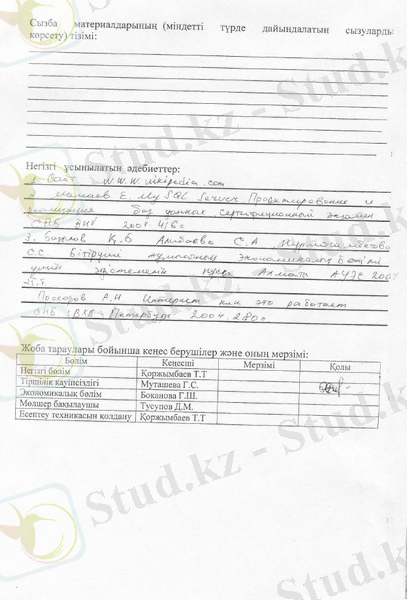 Сызба материалдарының (міндетті түрде дайындалатын сызуларды
көрсету) тізімі:
Негізгі ұсынылатын әдебиеттер:
1. Сайт WWW.wikipedia.com
2. Мамаев Е. MySQL Server. Проектирование и
баз данных
БХВ 2004
3. Базылов Қ.Б Алибаева С.А
С.С. Бітіруші жұмысының экономикалық бөлімі
үшін Алматы АУЭС 200
Прохоров А.Н Интернет как это работает
СПб: БХВ - Петербург 2004. 280с
Жоба тараулары бойынша кеңес берушілер және оның мерзімі:
Бөлім Кеңесші Мерзімі Қолы
Негізгі бөлім Қоржымбаев Т.Т
Тіршілік қауіпсіздігі Муташева Г.С.
Экономикалық бөлім Боканова Г.Ш.
Мөлшер бақылаушы Тусупов Д.М.
Есептеу техникасын қолдану Қоржымбаев Т.Т
Stud.kz - Stud.kz